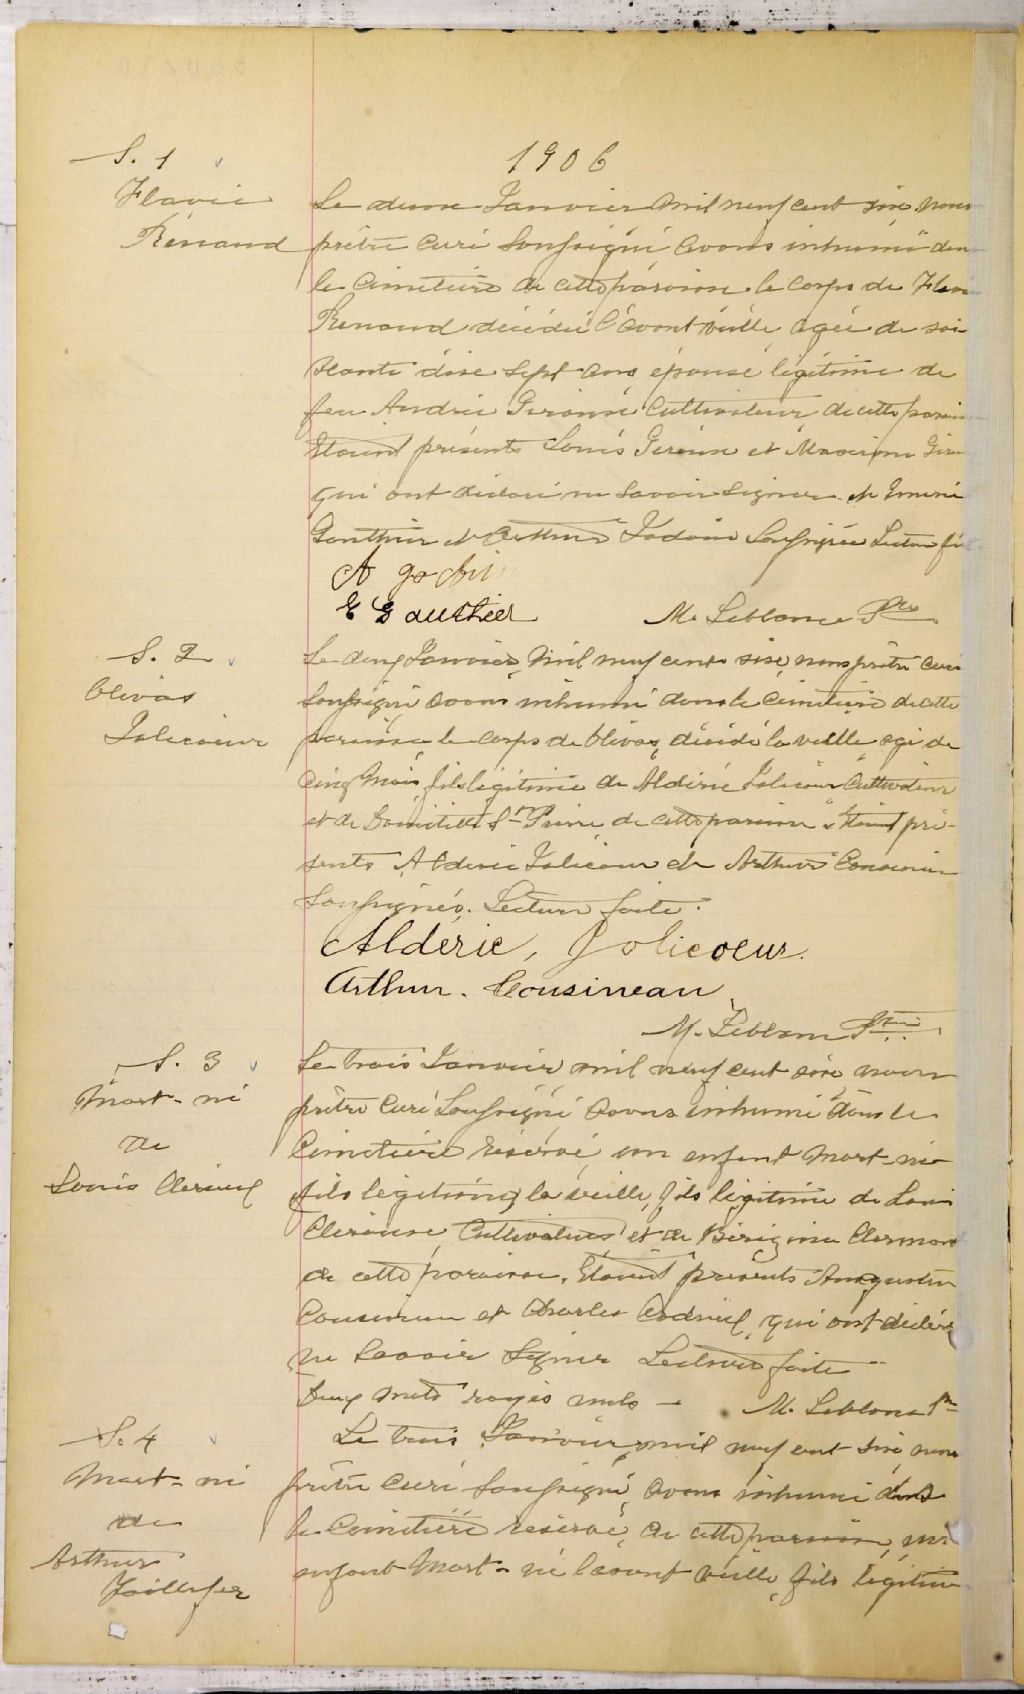 1906
S. 1
Flavie
Renaud
Le deux Janvier mil neuf cent six, nous
prêtre curé soussigné avons inhumé dan
le cimetière de cette paroisse le corps de Flav
Renaud décédée l'avant veille, agée de soi
xante dixe sept ans, épouse légitime de
feu André Girouse cultivateur de cette parois
Etaient présents Louis Girouse et Maxime Girou
qui ont déclaré ne savoir signer
Gauthier et Arthur Jodoin soussignés Lecture fai
A
E Gauthier
M. Leblanc Ptre
S. 2
Olivas
Jolicoeur
Le deux Janvier, mil neuf cent six, nous prêtre curé
soussigné avons inhumé dans le cimetière de cette
paroisse le corps de Olivas, décédé la veille agé de
cinq mois, fils légitime de Aldéric Jolicoeur cultivateur
et de Domitille St Pierre de cette paroisse. Etaient pré-
sents Alderic Jolicoeur et Arthur Cousineau
soussignés. Lecture faite.
Aldéric, Jolicoeur.
Arthur. Cousineau
M. Leblanc Ptre
S. 3
Mort-né
de
Louis
Le trois Janvier mil neuf cent six, nous
prêtre curé soussigné avons inhumé dans le
cimetière réservé, un enfant mort-né
fils légitime, la veille, fils légitime de Loui
cultivateur et de Clermont
de cette paroisse. Etaient présents Augustin
Cousineau et Charles qui ont déclaré
ne savoir signer Lecture faite
Deux mots rayés nuls — M. Leblanc Ptre
S. 4
Mort-né
de
Arthur
Taillefer
Le trois Janvier, mil neuf cent six, nous
prêtre curé soussigné, avons inhumé dans
le cimetière réservé, de cette paroisse, un
enfant mort-né l'avant veille, fils légitime